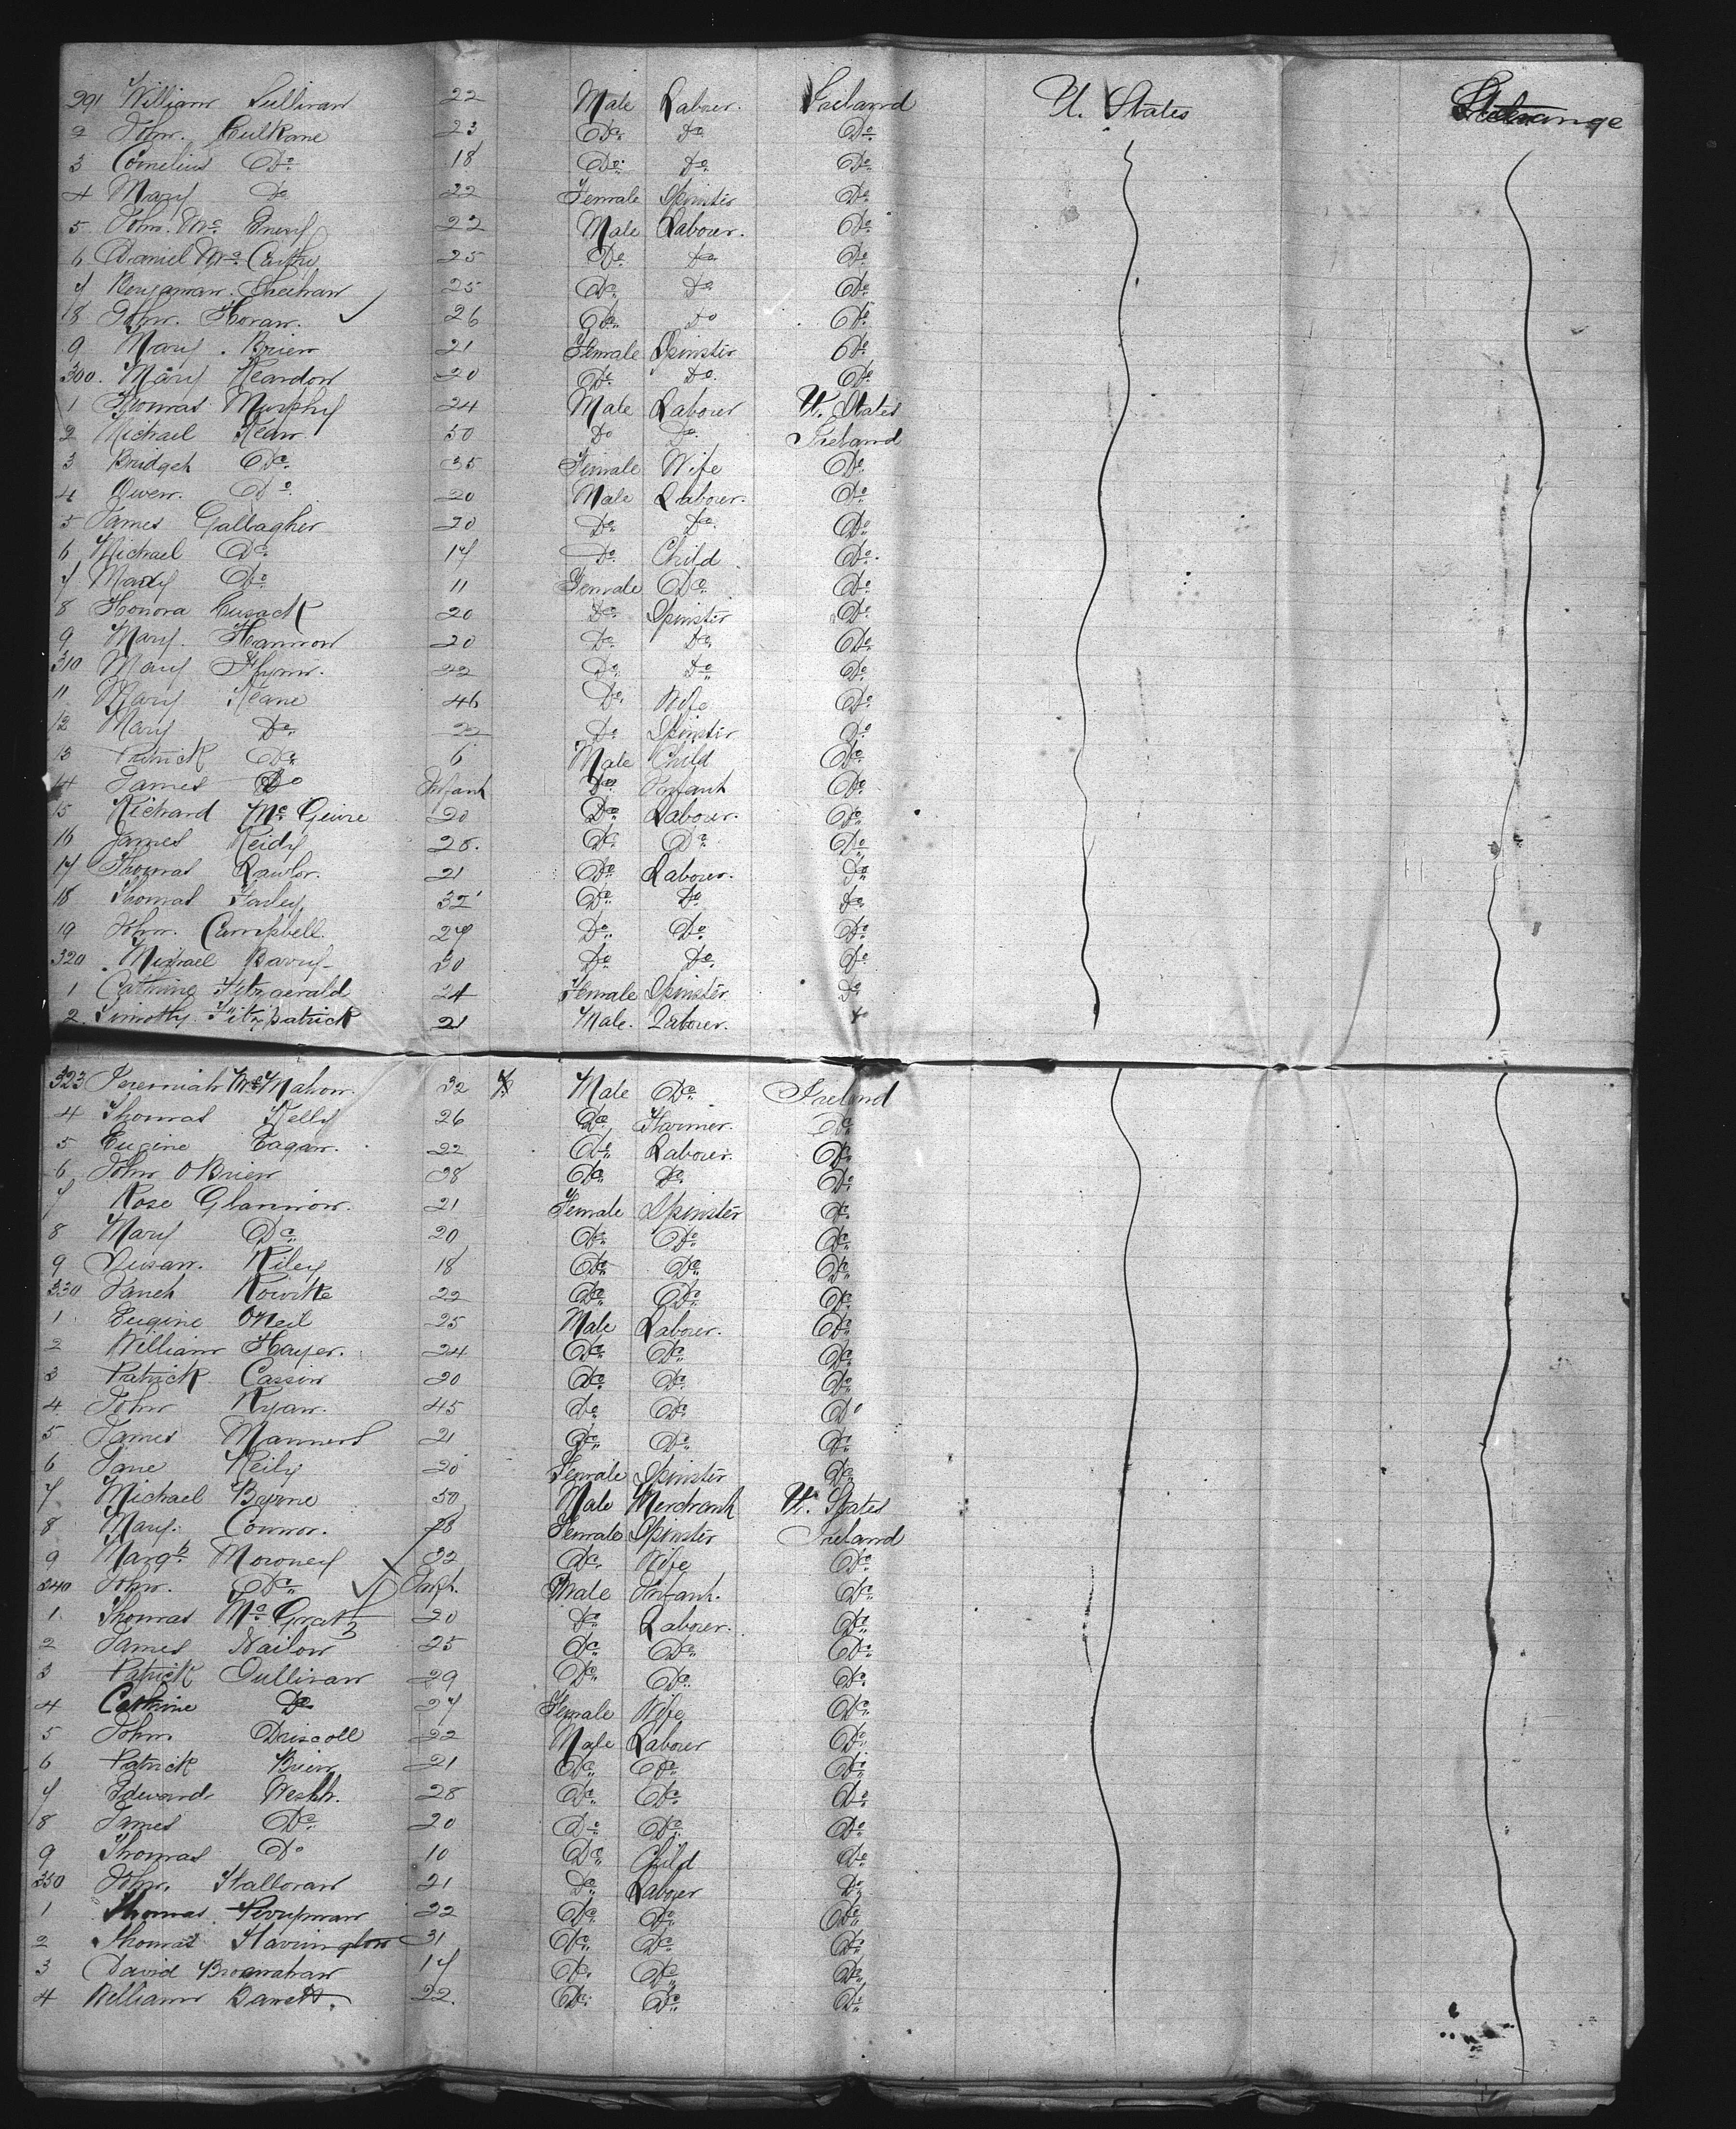 291 William Sullivan 22 Male Labourer Ireland U. States Steerange
2 John Culkane 23 Do Do Do
3 Cornelius Do 18 Do Do Do
4 Mary Do 22 Female Spinster Do
5 John Mc 22 Male Labourer Do
6 Daniel Mc Carthy 25 Do Do Do
7 Benjaman Sheehan 25 Do Do Do
18 John Horan 26 Do Do Do
9 Mary Brien 21 Female Spinster Do
300 Mary Reardon 20 Do Do Do
1 Thomas Murphy 24 Male Labourer U. States
2 Michael Kean 50 Do Do Ireland
3 Bridget Do 35 Female Wife Do
4 Owen Do 20 Male Labourer Do
5 James Gallagher 20 Do Do Do
6 Michael Do 17 Do Child Do
7 Mary Do 11 Female Do Do
8 Honora Cusack 20 Do Spinster Do
9 Mary Hannon 20 Do Do Do
310 Mary Flynn 22 Do Do Do
11 Mary Keane 46 Do Wife Do
12 Mary Do 22 Do Spinster Do
13 Patrick Do 6 Male Child Do
14 James Do Infant Do Infant Do
15 Richard Mc Geuire 20 Do Labourer Do
16 James Reidy 28 Do Do Do
17 Thomas Lawlor 21 Do Labourer Do
18 Thomas Farley 32 Do Do Do
19 John Campbell 27 Do Do Do
320 Michael Barry 30 Do Do Do
1 Cathrine Fitzgerald 24 Female Spinster Do
2 Timothy Fitzpatrick 21 Male Labourer
323 Jeremiah McMahon 32 Male Do Ireland
4 Thomas Kelly 26 Do Farmer Do
5 Eugine Eagan 22 Do Labourer Do
6 John O Brien 28 Do Do Do
7 Rose Glannion 21 Female Spinster Do
8 Mary Do 20 Do Do Do
9 Susan Riley 18 Do Do Do
330 22 Do Do Do
1 Eugine ONeil 25 Male Labourer Do
2 William Hayes 24 Do Do Do
3 Patrick Cassin 20 Do Do Do
4 John Ryan 45 Do Do Do
5 James Manners 21 Do Do Do
6 Jane Reily 20 Female Spinster Do
7 Michael Byrne 50 Male Merchant U. States
8 Mary Connor 28 Female Spinster Ireland
9 Margt Morouney 32 Do Wife Do
340 John Do Inft. Male Infant Do
1 Thomas Mc Grath 20 Do Labourer Do
2 James 25 Do Do Do
3 Patrick Sullivan 29 Do Do Do
4 Cathrine Do 27 Female Wife Do
5 John Driscoll 22 Male Labourer Do
6 Patrick Brien 21 Do Do Do
7 Edward 28 Do Do Do
8 James Do 20 Do Do Do
9 Thomas Do 10 Do Child Do
350 John Halloran 21 Do Labourer Do
1 Thomas 22 Do Do Do
2 Thomas Harrington 31 Do Do Do
3 David Brosnahan 17 Do Do Do
4 William Barrett 22 Do Do Do